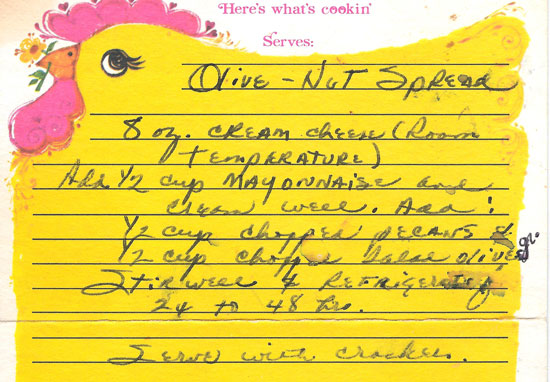 Here's what's cookin'
Serves:
Olive - Nut Spread
8 oz. cream cheese (Room
temperature)
Add 1/2 cup mayonnaise and
cream well. Add:
1/2 cup chopped pecans &
1/2 cup chopped salad olives gr.
Stir well & Refrigerate
24 to 48 hrs.
Serve with crackers.